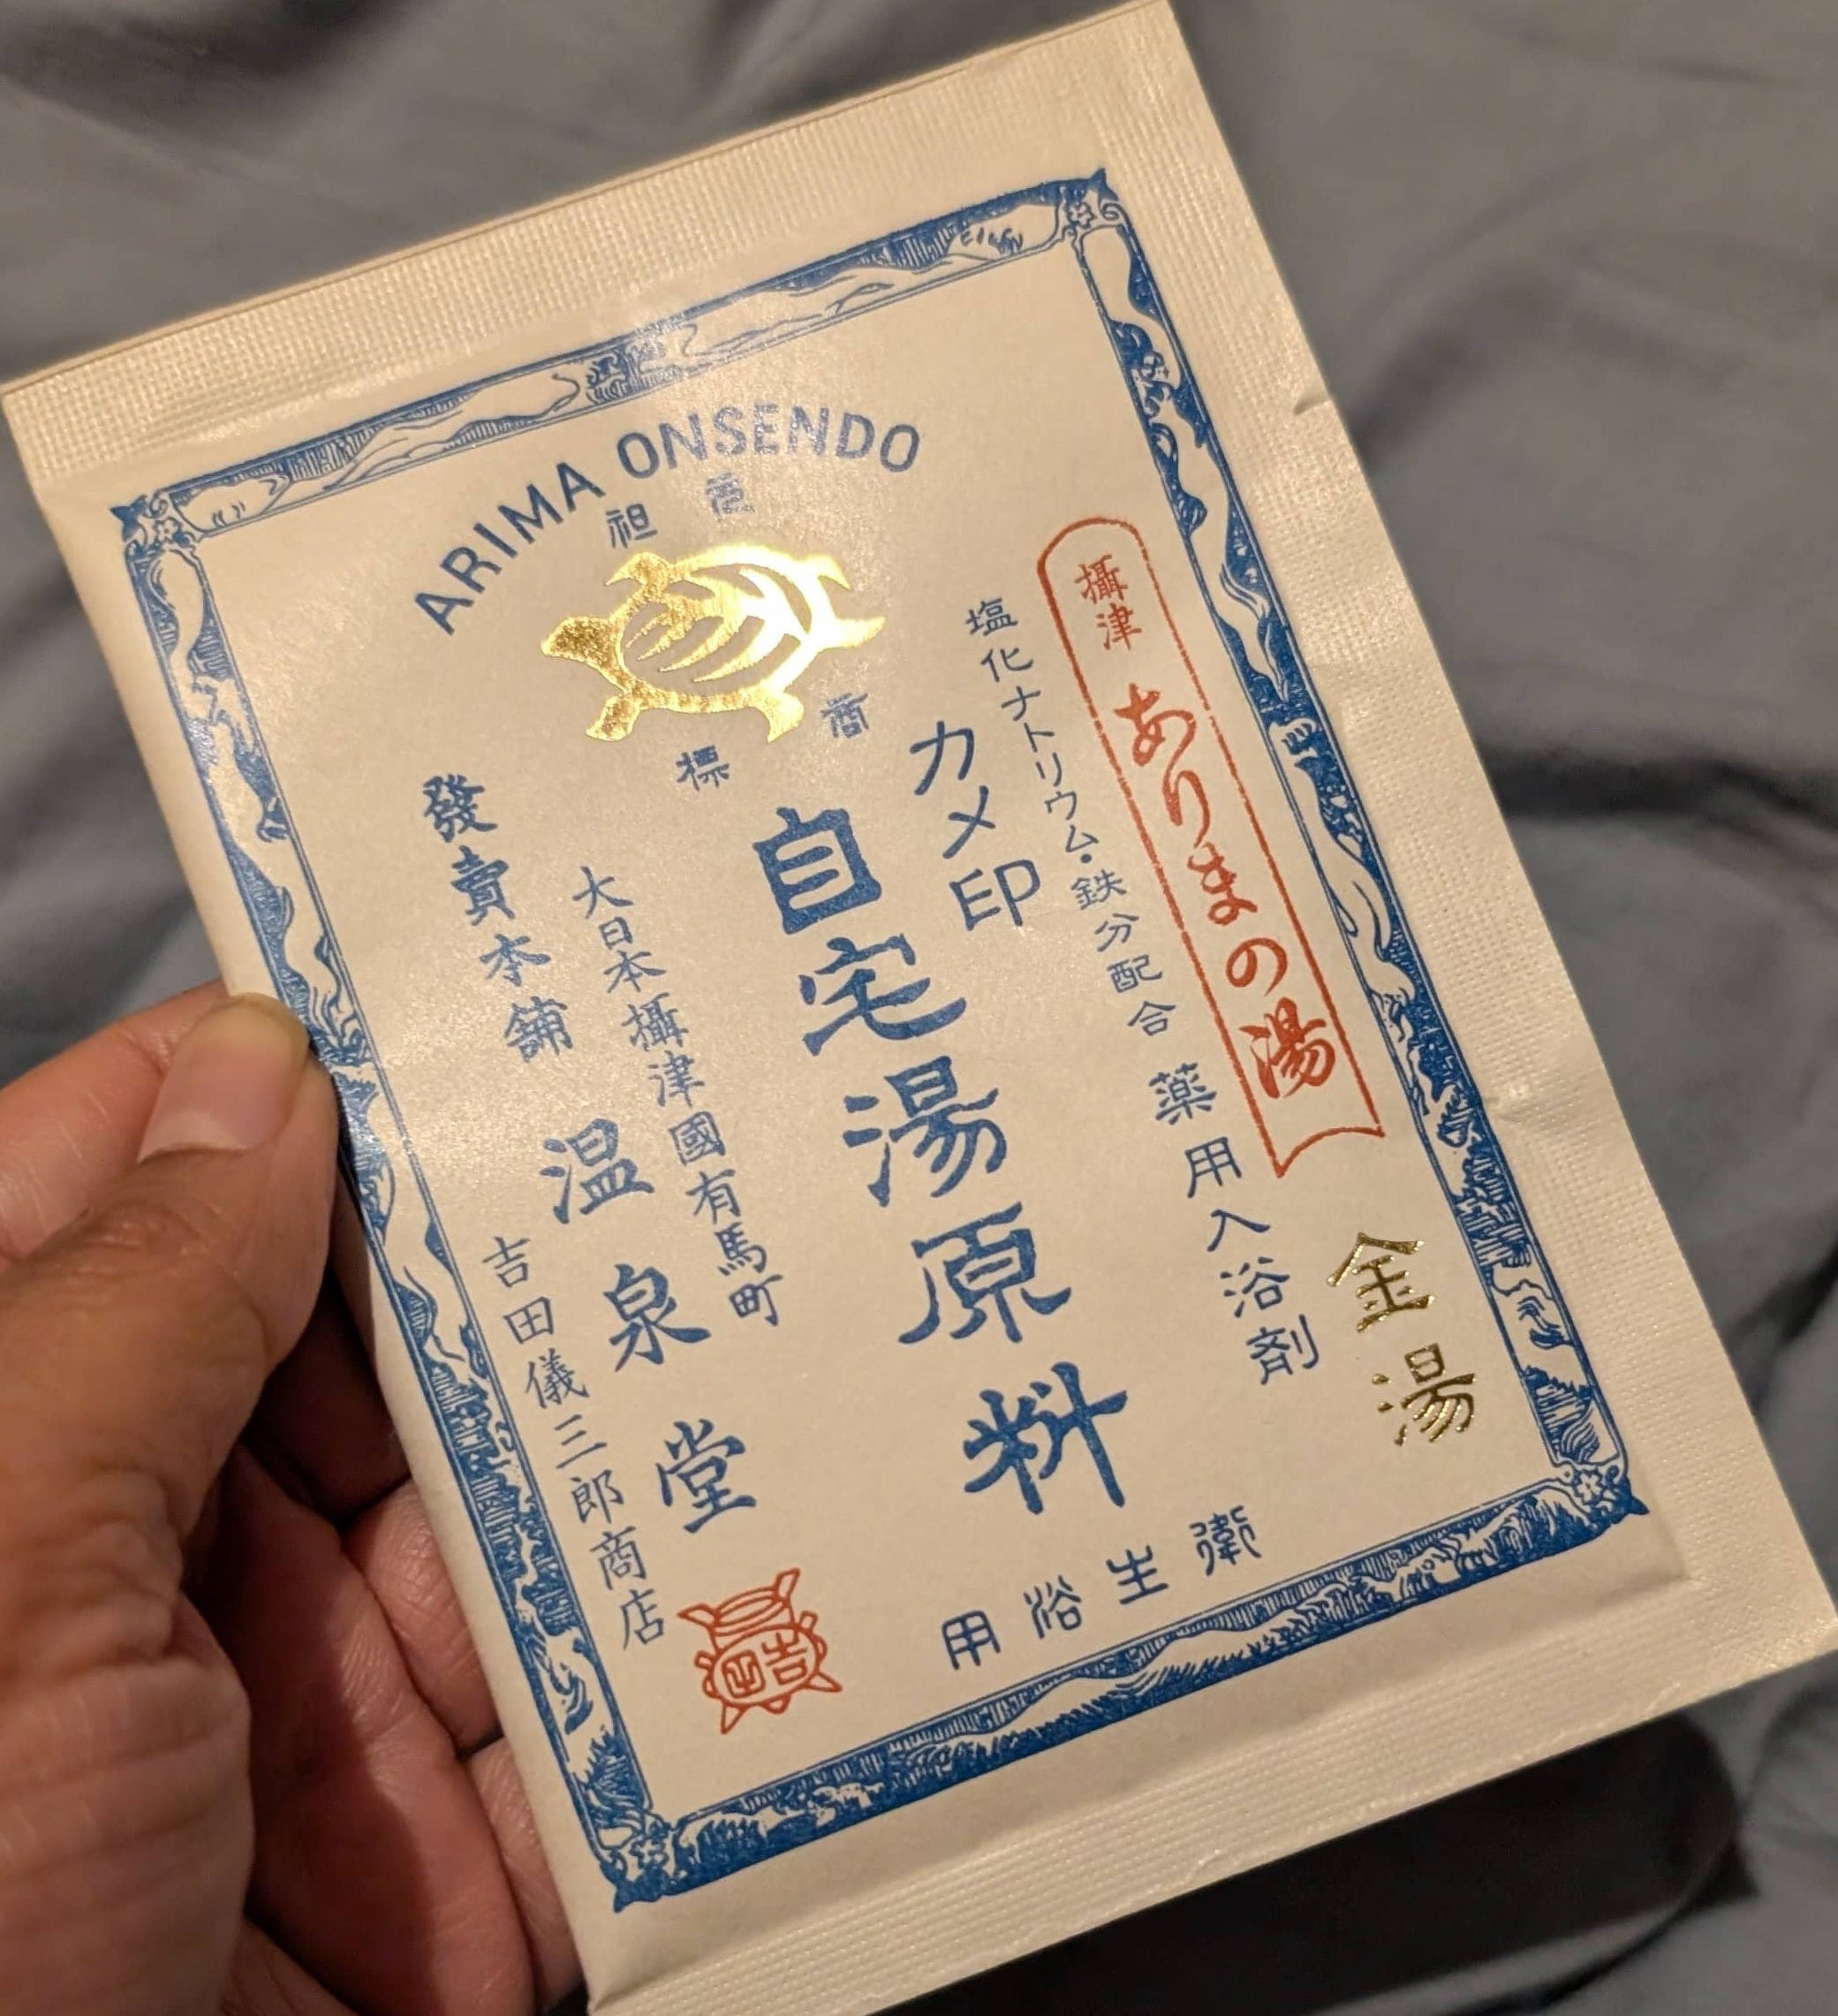 ARIMA ONSENDO
商標
攝津 ありまの湯
金湯
塩化ナトリウム・鉄分配合 薬用入浴剤
カメ印
自宅湯原料
衛生浴用
大日本攝津國有馬町
發賣本舗 温泉堂
吉田儀三郎商店